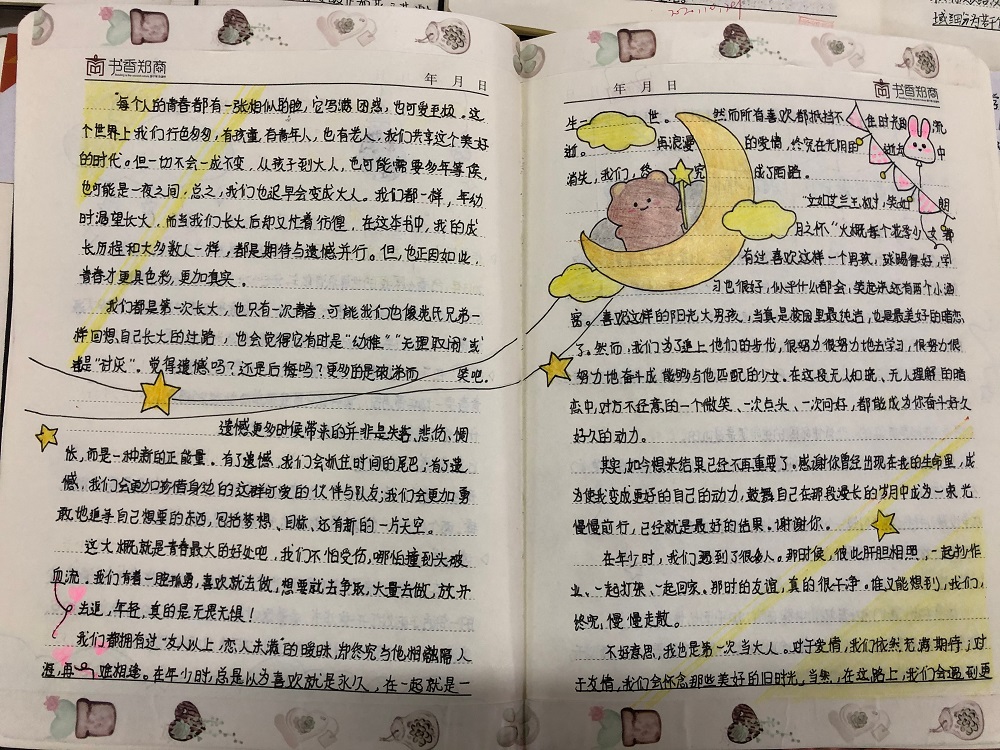 书香郑商
年 月 日
每个人的青春都有一张相似的脸，它写满困惑，也可爱至极。这
个世界上我们行色匆匆，有孩童，有青年人，也有老人。我们共享这个美好
的时代。但一切不会一成不变，从孩子到大人，也可能需要多年等候，
也可能是一夜之间，总之，我们也迟早会变成大人。我们都一样，年幼
时渴望长大，而当我们长大后却又忙着彷徨，在这本书中，我的成
长历程和大多数人一样，都是期待与遗憾并行。但，也正因如此，
青春才更具色彩，更加真实。
我们都是第一次长大，也只有一次青春，可能我们也像 氏兄弟一
样回想自己长大的过路，也会觉得它有时是“幼稚”“无理取闹”或
是“讨厌”。觉得遗憾吗？还是后悔吗？更多的是淡淡而 笑吧。
遗憾更多时候带来的并非是失落、悲伤、惆
怅，而是一种新的正能量。有了遗憾，我们会抓住时间的尾巴；有了遗
憾，我们会更加珍惜身边的这群可爱的伙伴与队友；我们会更加勇
敢地追寻自己想要的东西，包括梦想、目标、还有新的一片天空。
这大概就是青春最大的好处吧，我们不怕受伤，哪怕撞到头破
血流。我们有着一腔孤勇，喜欢就去做，想要就去争取，大量去做，放开
去追，年轻，真的是无畏无惧！
我们都拥有过“友人以上，恋人未满”的暧昧，却终究与他相 隔人
涯，再 难相逢。在年少时，总是以为喜欢就是永久，在一起就是一
年 月 日
书香郑商
生一 世。 然而所有喜欢都抵挡不 住时光的 流
逝。 再浪漫 的爱情，终究在无用的 逝去 中
消失，我们，终 究 成了陌路。
“文如芝兰玉树，笑如 朗
月之怀，”大概每个花季少女都
有过喜欢这样一个男孩，球踢得好，学
习也很好，似乎什么都会，笑起来还有两个小酒
窝。喜欢这样的阳光大男孩，当真是校园里最纯洁，也是最美好的暗恋
了。然而，我们为了追上他们的步伐，很努力很努力地去学习，很努力很
努力地奋斗成 能够与他匹配的少女。在这段无人知晓、无人理解的暗
恋中，对方不经意的一个微笑、一次点头、一次问好，都能成为你奋斗好久
好久的动力。
其实，如今想来结果已经不再重要了。感谢你曾经出现在我的生命里，成
为使我变成更好的自己的动力，鼓舞自己在那段漫长的岁月中成为一束光
慢慢前行，已经就是最好的结果。谢谢你。
在年少时，我们遇到了很多人。那时候，彼此肝胆相照，一起抄作
业、一起打架、一起回家。那时的友谊，真的很干净。谁又能想到，我们，
终究，慢慢走散。
不好意思，我也是第一次当大人。对于爱情，我们依然充满期待；对
于友情，我们会怀念那些美好的旧时光。当然，在这路上，我们会遇到更